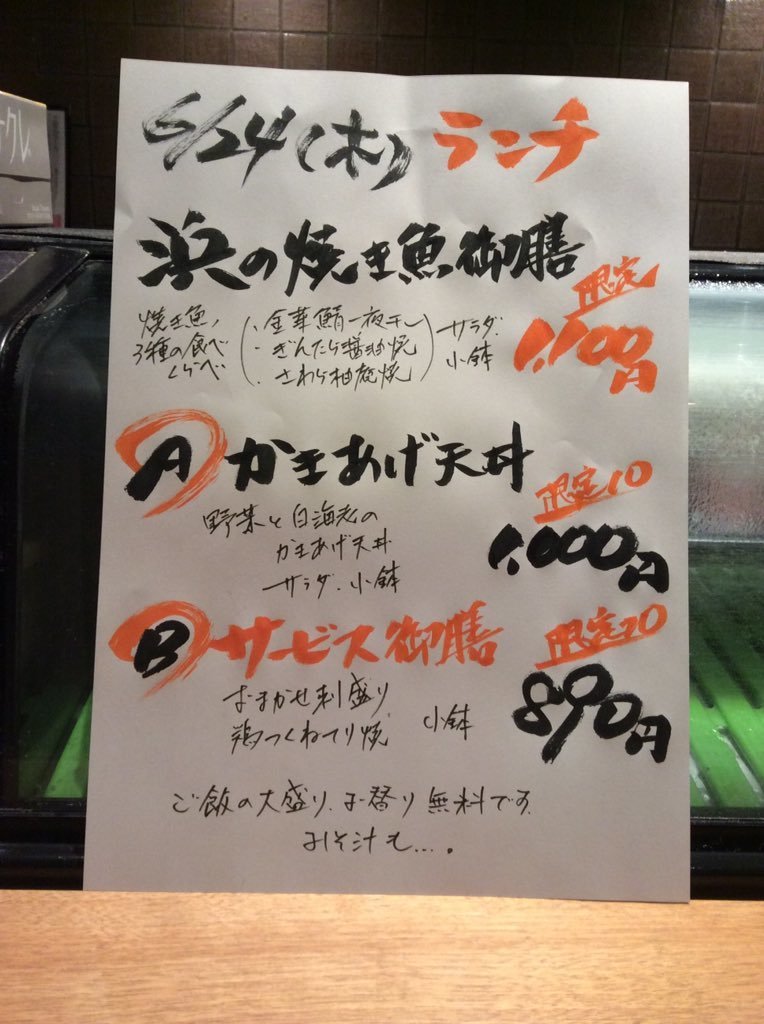 クレ
6/24(木)ランチ
浜の焼き魚御膳
限定
1,100円
焼き魚
3種の食べ
くらべ
・金華鯖一夜干し
・ぎんだら醤油焼
・さわら柚庵焼
サラダ
小鉢
A かきあげ天丼
限定10
1,000円
野菜と白海老の
かきあげ天丼
サラダ・小鉢
B サービス御膳
限定20
890円
おまかせ刺盛り
鶏つくねてり焼
小鉢
ご飯の大盛り、お替り無料です
みそ汁も…。